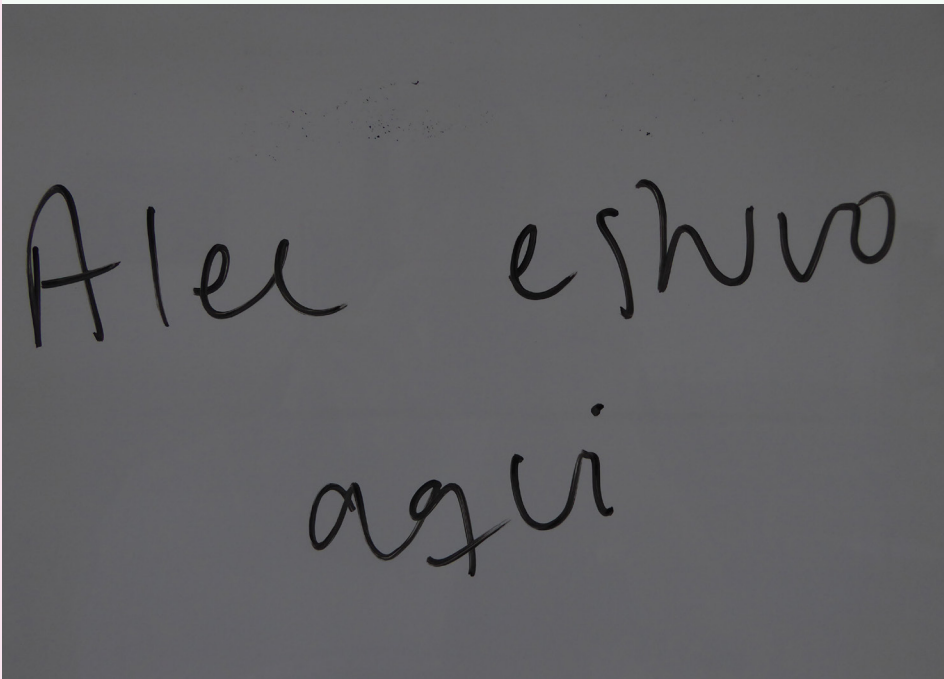 Alec estuvo
aqui